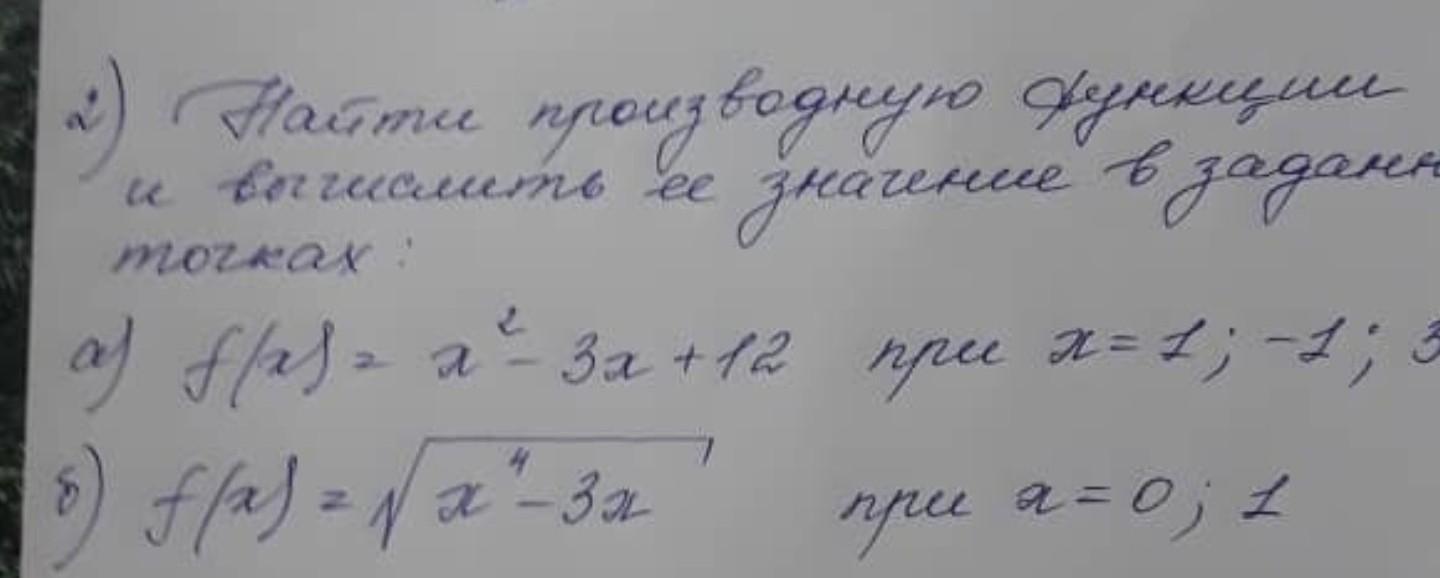 2) Найти производную функции
и вычислить ее значение в заданн
точках:
а) f(x) = x² - 3x + 12 при x = 1; -1; 3
б) f(x) = √(x⁴ - 3x) при x = 0; 1